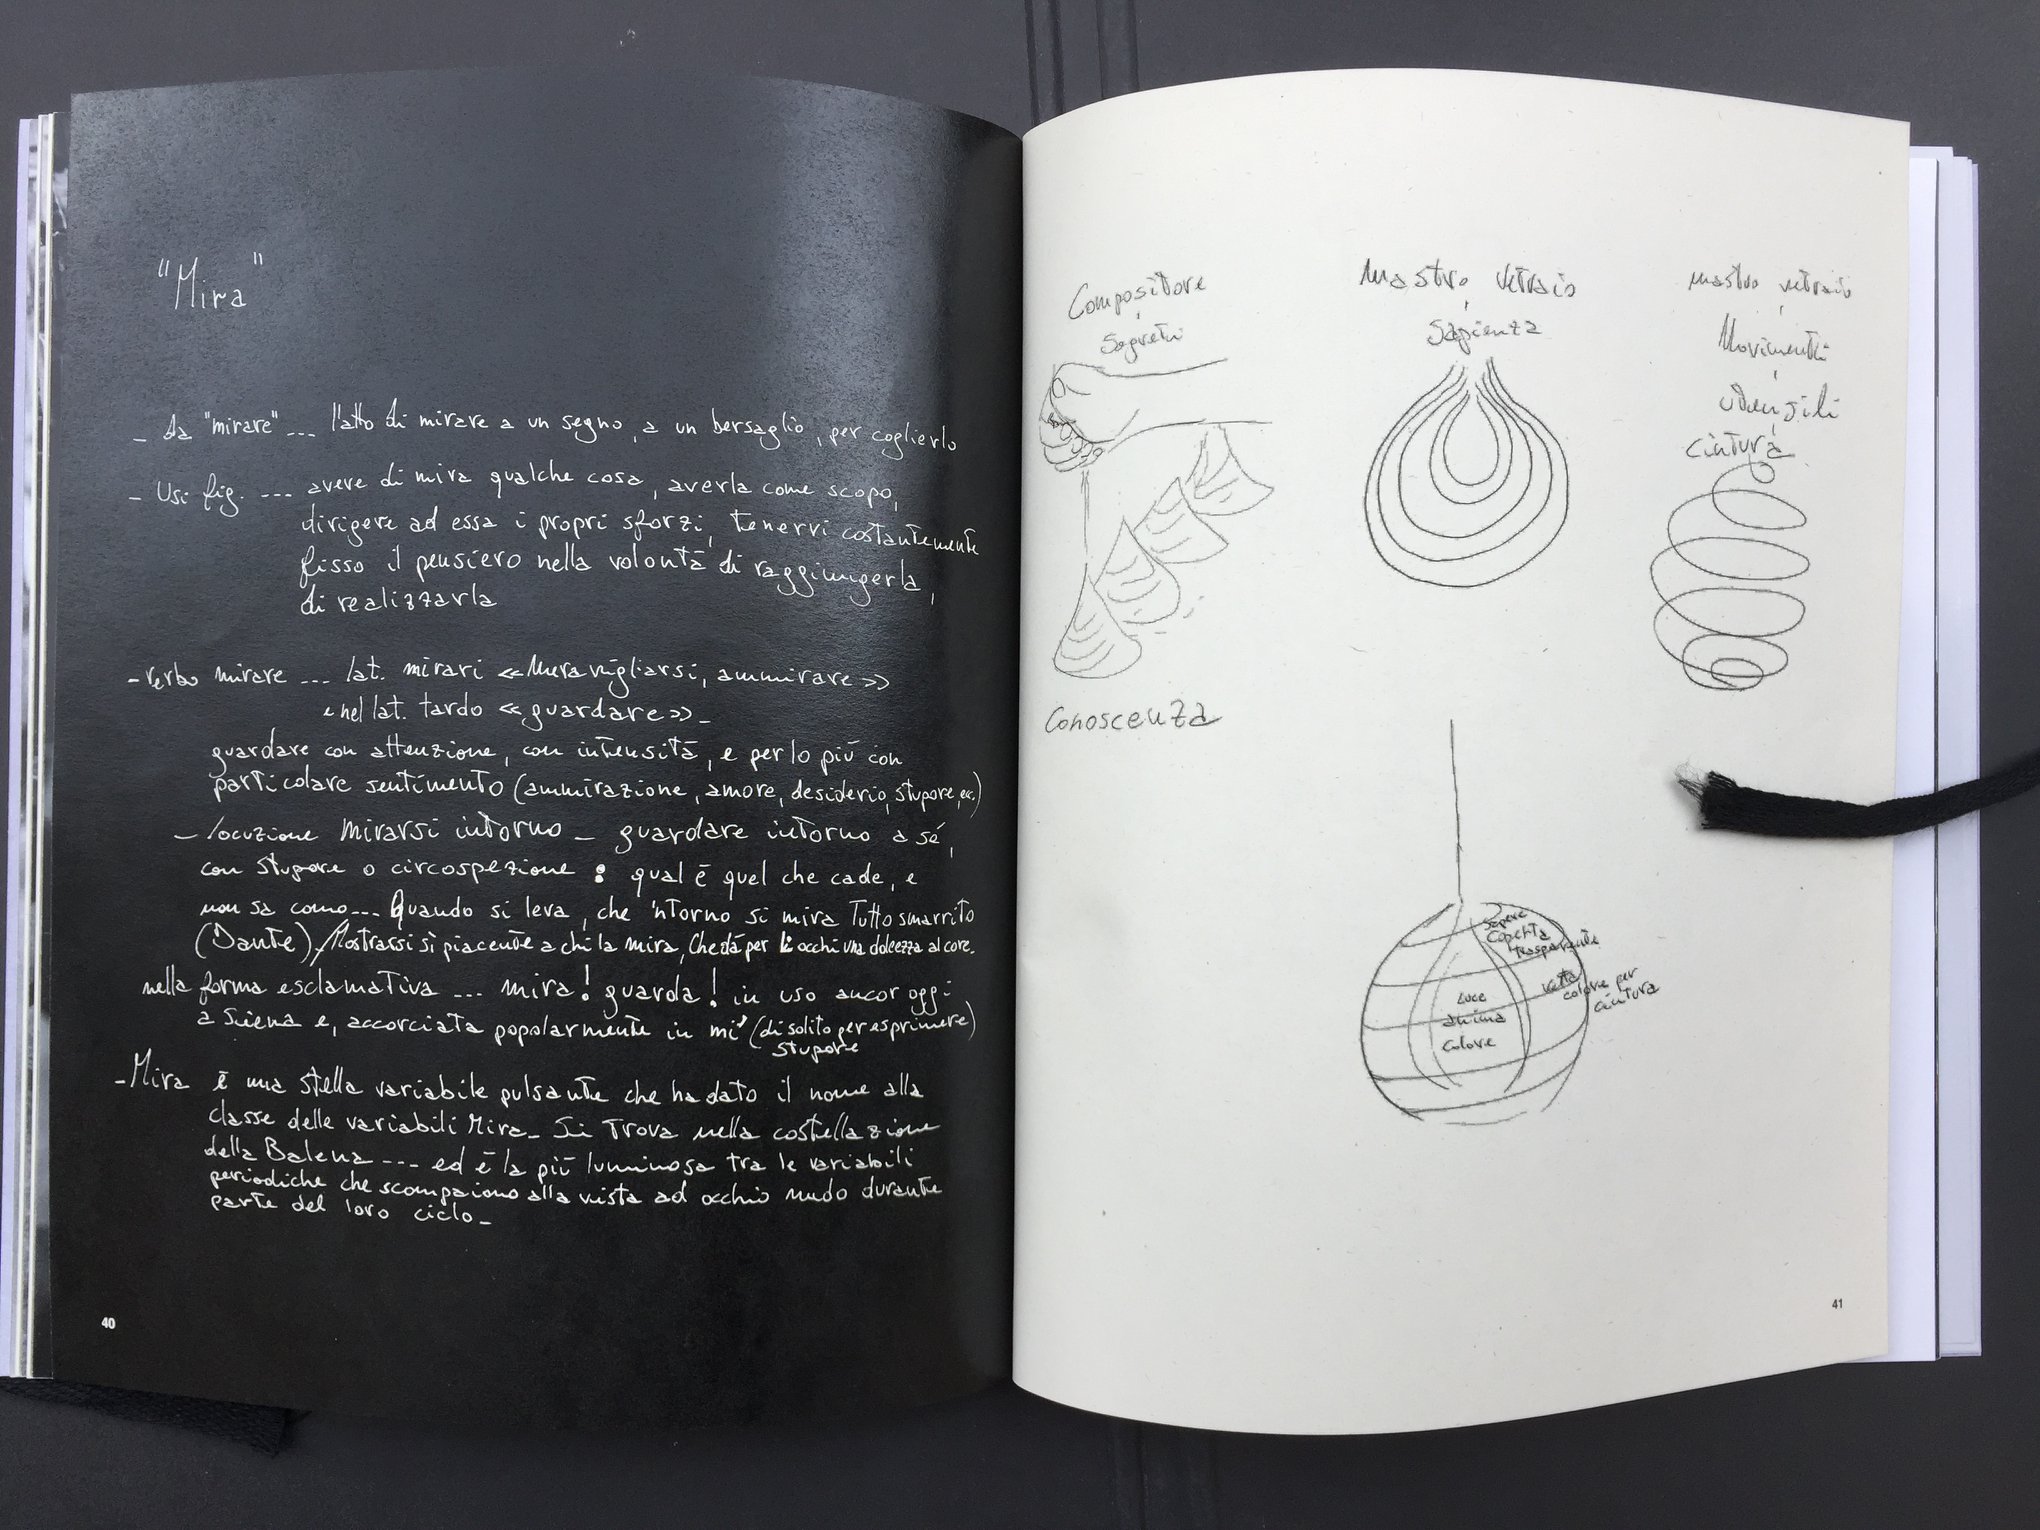 "Mira"
- da "mirare" ... l'atto di mirare a un segno, a un bersaglio, per coglierlo
- Usi fig. ... avere di mira qualche cosa, averla come scopo,
dirigere ad essa i propri sforzi, tenervi costantemente
fisso il pensiero nella volontà di raggiungerla,
di realizzarla
- verbo mirare ... lat. mirari «Meravigliarsi, ammirare»
e nel lat. tardo «guardare» -
guardare con attenzione, con intensità, e per lo più con
particolare sentimento (ammirazione, amore, desiderio, stupore, ec.)
- locuzione mirarsi intorno - guardare intorno a sé,
con stupore o circospezione : qual è quel che cade, e
non sa como... Quando si leva, che 'ntorno si mira Tutto smarrito
(Dante), Mostrassi sì piacente a chi la mira, Che dà per li occhi una dolcezza al core.
nella forma esclamativa ... mira! guarda! in uso ancor oggi
a Siena e, accorciata popolarmente in mi' (di solito per esprimere)
stupore
- Mira è una stella variabile pulsante che ha dato il nome alla
classe delle variabili Mira - Si trova nella costellazione
della Balena ... ed è la più luminosa tra le variabili
periodiche che scompaiono alla vista ad occhio nudo durante
parte del loro ciclo -
40
Compositore
Segreti
Conoscenza
Mastro vetraio
Sapienza
mastro vetraio
Movimenti
utensili
cintura
sapere
coperta
trasparente
vesta
colore per
cintura
Luce
anima
colore
41